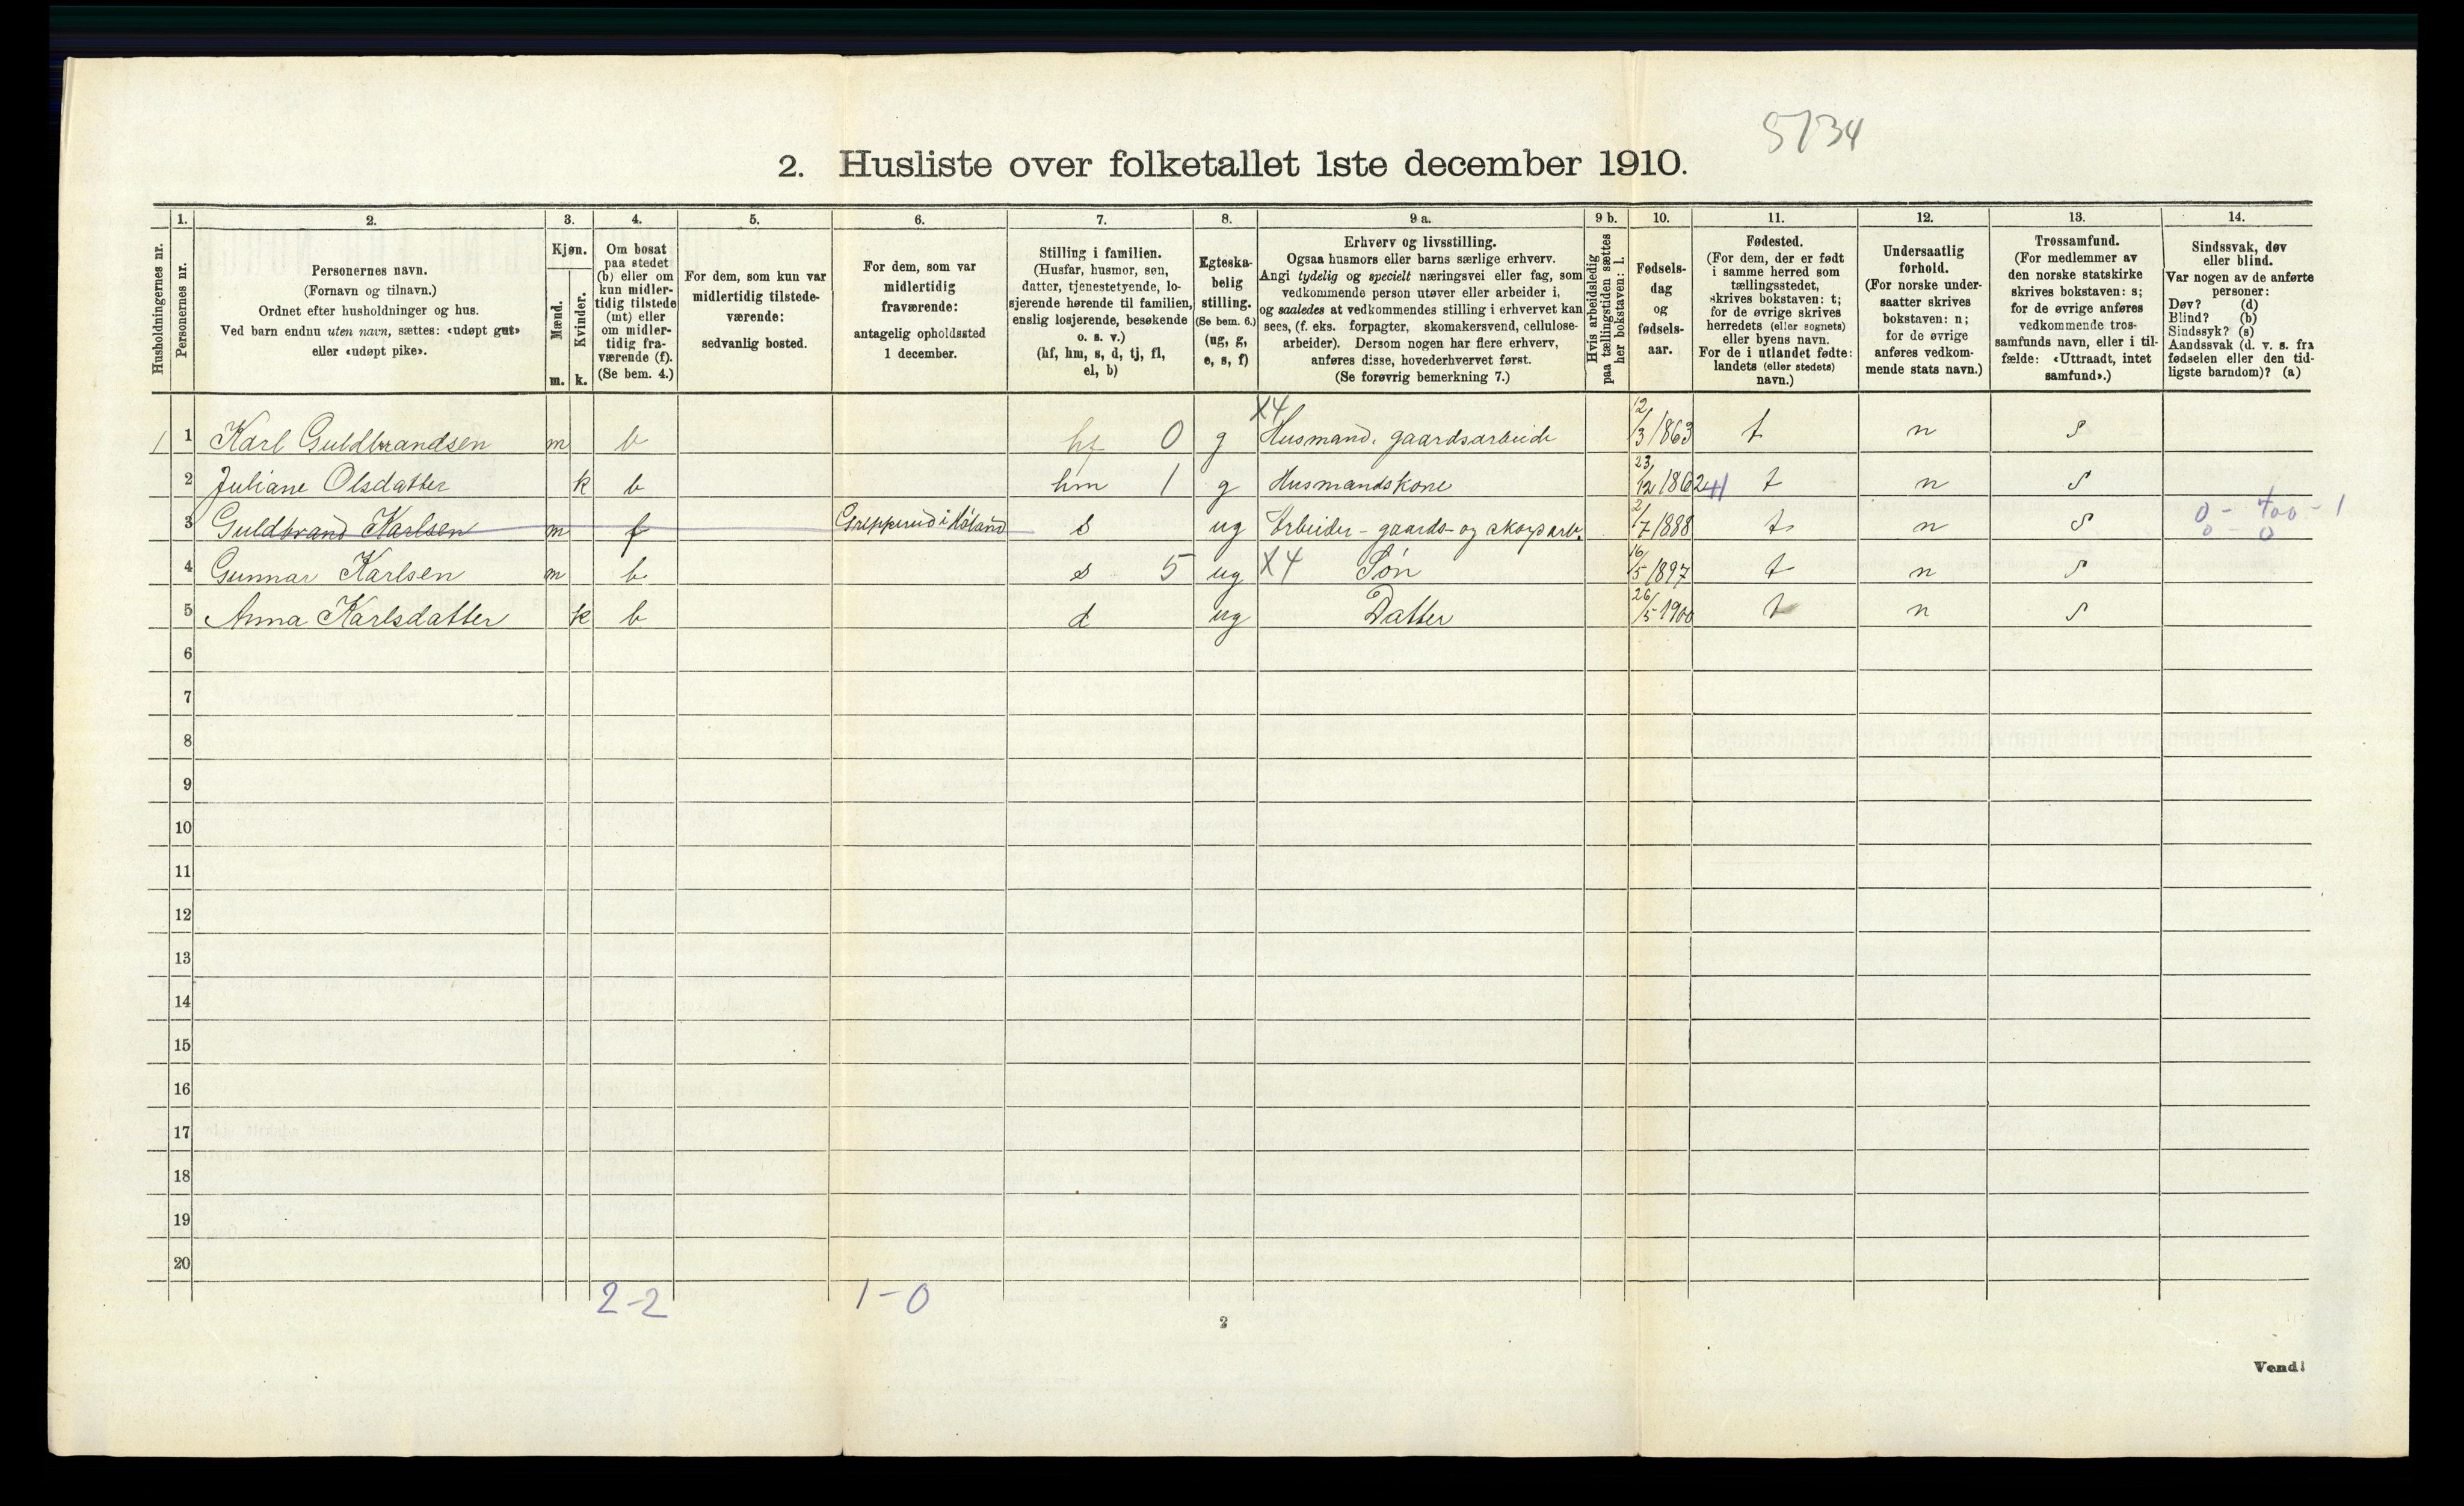 5734
2. Husliste over folketallet 1ste december 1910.
Husholdningernes nr.
1.
Personernes nr.
2.
Personernes navn.
(Fornavn og tilnavn.)
Ordnet efter husholdninger og hus.
Ved barn endnu uten navn, sættes: «udøpt gut»
eller «udøpt pike».
3.
Kjøn.
Mænd.
m.
Kvinder.
k.
4.
Om bosat
paa stedet
(b) eller om
kun midler-
tidig tilstede
(mt) eller
om midler-
tidig fra-
værende (f).
(Se bem. 4.)
5.
For dem, som kun var
midlertidig tilstede-
værende:
sedvanlig bosted.
6.
For dem, som var
midlertidig
fraværende:
antagelig opholdssted
1 december.
7.
Stilling i familien.
(Husfar, husmor, søn,
datter, tjenestetyende, lo-
sjerende hørende til familien,
enslig losjerende, besøkende
o. s. v.)
(hf, hm, s, d, tj, fl,
el, b)
8.
Egteska-
belig
stilling.
(Se bem. 6.)
(ug, g,
e, s, f)
9 a.
Erhverv og livsstilling.
Ogsaa husmors eller barns særlige erhverv.
Angi tydelig og specielt næringsvei eller fag, som
vedkommende person utøver eller arbeider i,
og saaledes at vedkommendes stilling i erhvervet kan
sees, (f. eks. forpagter, skomakersvend, cellulose-
arbeider). Dersom nogen har flere erhverv,
anføres disse, hovederhvervet først.
(Se forøvrig bemerkning 7.)
9 b.
Hvis arbeidsledig
paa tællingstiden sættes
her bokstaven: l.
10.
Fødsels-
dag
og
fødsels-
aar.
11.
Fødested.
(For dem, der er født
i samme herred som
tællingsstedet,
skrives bokstaven: t;
for de øvrige skrives
herredets (eller sognets)
eller byens navn.
For de i utlandet fødte:
landets (eller stedets)
navn.)
12.
Undersaatlig
forhold.
(For norske under-
saatter skrives
bokstaven: n;
for de øvrige
anføres vedkom-
mende stats navn.)
13.
Trossamfund.
(For medlemmer av
den norske statskirke
skrives bokstaven: s;
for de øvrige anføres
vedkommende tros-
samfunds navn, eller i til-
fælde: «Uttraadt, intet
samfund».)
14.
Sindssvak, døv
eller blind.
Var nogen av de anførte
personer:
Døv? (d)
Blind? (b)
Sindssyk? (s)
Aandssvak (d. v. s. fra
fødselen eller den tid-
ligste barndom)? (a)
1 1 Karl Guldbrandsen m b hf 0 g X4 Husmand, gaardsarbeide 12/3 1863 t n s
2 Juliane Olsdatter k b hm 1 g Husmandskone 23/12 1862 t n s
3 Guldbrand Karlsen m f i Høland s ug Arbeider - gaards- og skogsarb. 2/7 1888 t n s 0 - 400 - 1
0 - 0
4 Gunnar Karlsen m b s 5 ug X4 Søn 16/5 1897 t n s
5 Anna Karlsdatter k b d ug Datter 26/5 1900 t n s
6
7
8
9
10
11
12
13
14
15
16
17
18
19
20
2-2 1-0
2
Vend!